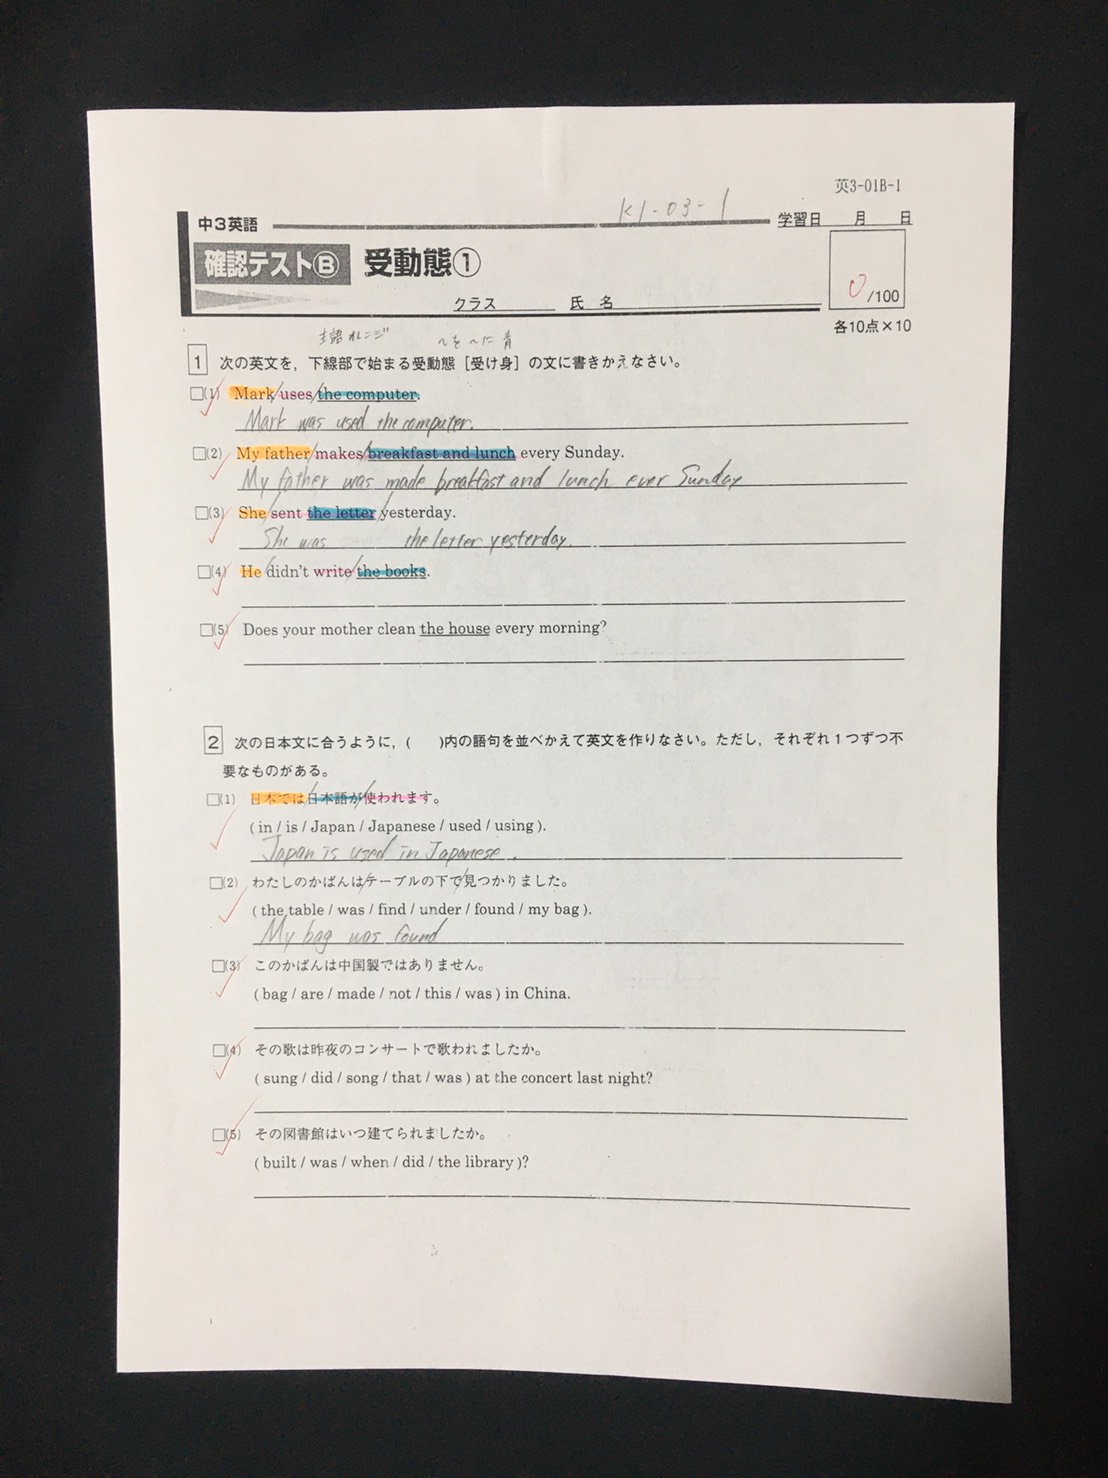 英3-01B-1
K1-03-1
中3英語 学習日 月 日
確認テストⒷ 受動態①
クラス 氏名
0 /100
各10点×10
主語オレンジ ～を～に青
1 次の英文を，下線部で始まる受動態［受け身］の文に書きかえなさい。
□(1) Mark/uses/the computer.
Mark was used the computer.
□(2) My father/makes/breakfast and lunch every Sunday.
My father was made breakfast and lunch ever Sunday
□(3) She/sent the letter/yesterday.
She was the letter yesterday.
□(4) He/didn't write/the books.
□(5) Does your mother clean the house every morning?
2 次の日本文に合うように，( )内の語句を並べかえて英文を作りなさい。ただし，それぞれ1つずつ不
要なものがある。
□(1) 日本では/日本語が/使われます。
( in / is / Japan / Japanese / used / using ).
Japan is used in Japanese.
□(2) わたしのかばんは/テーブルの下で/見つかりました。
( the table / was / find / under / found / my bag ).
My bag was found
□(3) このかばんは中国製ではありません。
( bag / are / made / not / this / was ) in China.
□(4) その歌は昨夜のコンサートで歌われましたか。
( sung / did / song / that / was ) at the concert last night?
□(5) その図書館はいつ建てられましたか。
( built / was / when / did / the library )?